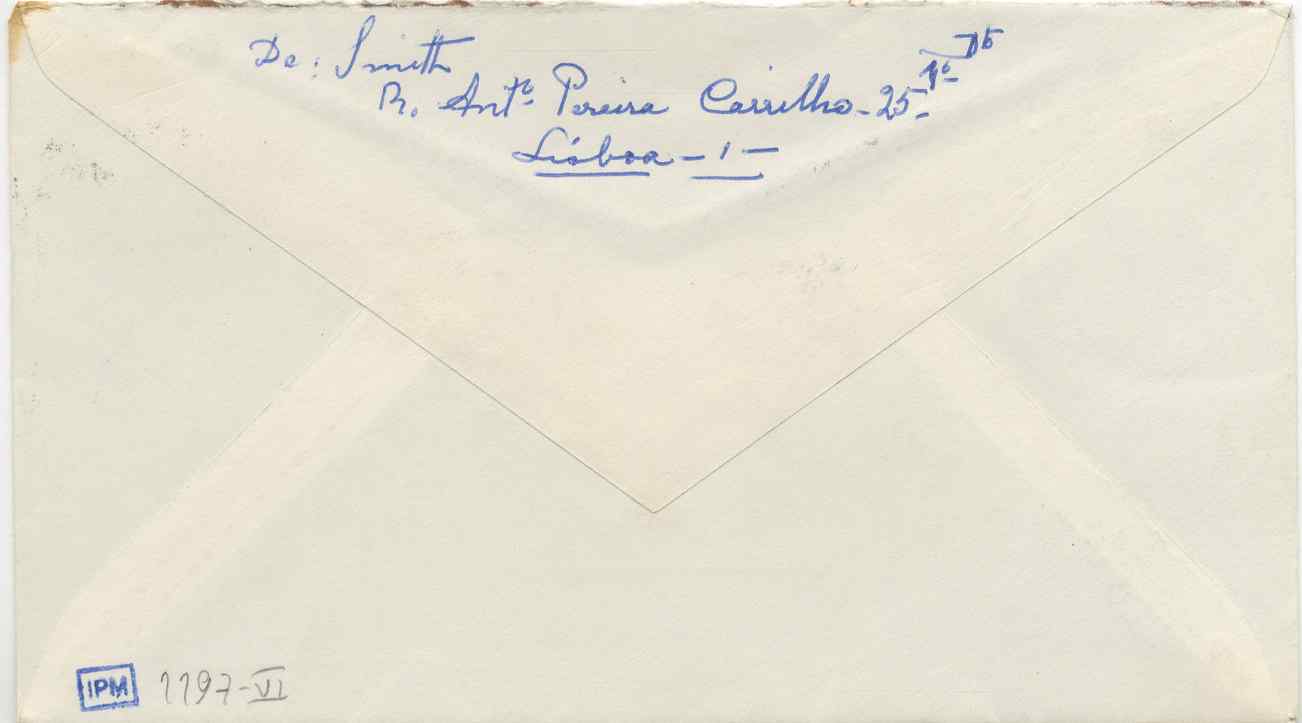 De: Smith
R. Antº Pereira Carrilho - 25 - 1º
Lisboa - 1 -
IPM 1197-VI